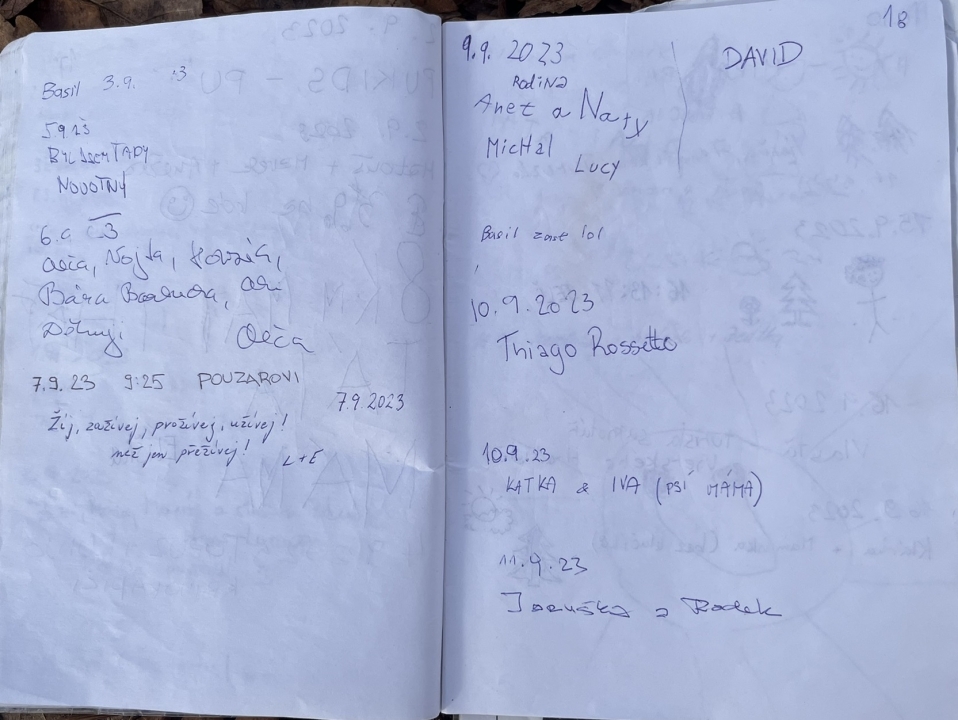 Basil 3.9. 23
5 9 23
BYL JSEM TADY
NOVOTNÝ
6.9 23
Bára
7.9.23 9:25 POUZAROVI
7.9.2023
Žij, zažívej, prožívej, užívej!
než jen přežívej!
L+E
18
9.9. 2023
RodiNa
Anet a Naty
MicHal
Lucy
DAVID
Basil zase lol
10.9.2023
Thiago Rossetto
10.9.23
KATKA & IVA (PSÍ MÁMA)
11.9.23
a Radek